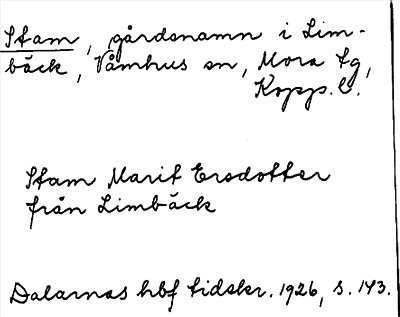 Stam, gårdsnamn i Lim-
bäck, Våmhus sn, Mora tg,
Kopps. l.
Stam Marit Ersdotter
från Limbäck
Dalarnas hbf tidskr. 1926, s. 143.